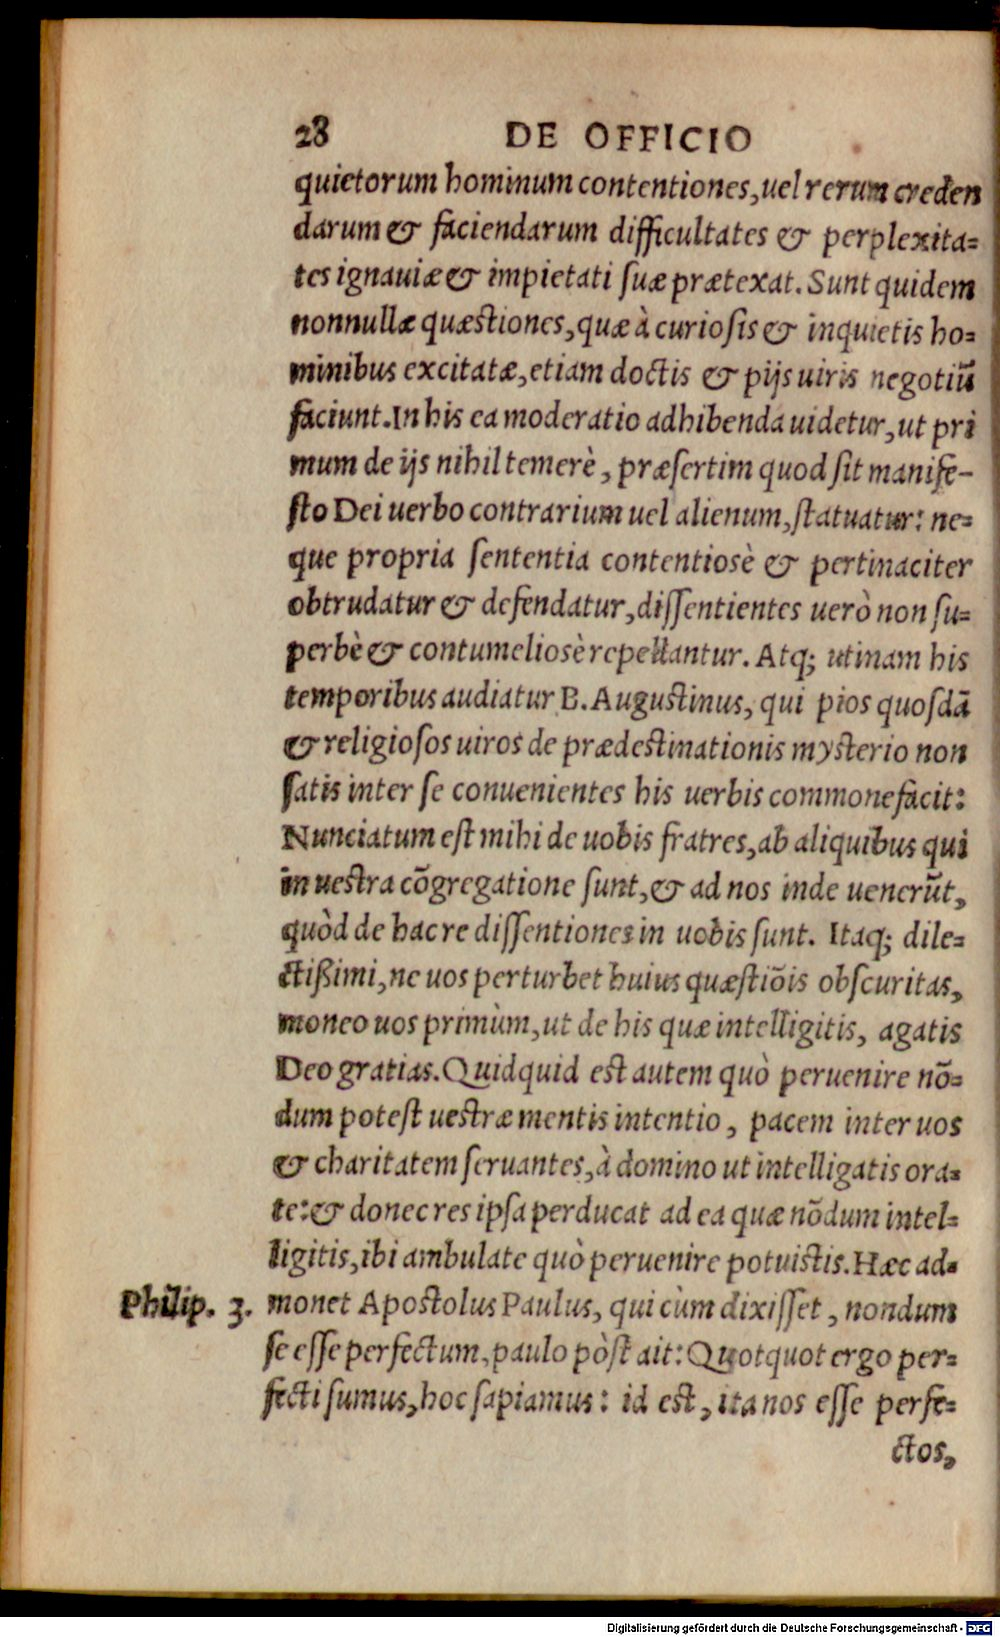 28 DE OFFICIO
quietorum hominum contentiones, uel rerum creden
darum & faciendarum difficultates & perplexita=
tes ignauiæ & impietati suæ prætexat. Sunt quidem
nonnullæ quæstiones, quæ à curiosis & inquietis ho=
minibus excitatæ, etiam doctis & pijs uiris negotiũ
faciunt. In his ea moderatio adhibenda uidetur, ut pri
mum de ijs nihil temerè, præsertim quod sit manife-
sto Dei uerbo contrarium uel alienum, statuatur: ne=
que propria sententia contentiosè & pertinaciter
obtrudatur & defendatur, dissentientes uerò non su=
perbè & contumeliosè repellantur. Atq; utinam his
temporibus audiatur B. Augustinus, qui pios quosdã
& religiosos uiros de prædestinationis mysterio non
satis inter se conuenientes his uerbis commonefacit:
Nunciatum est mihi de uobis fratres, ab aliquibus qui
in uestra cõgregatione sunt, & ad nos inde uenerũt,
quòd de hac re dissentiones in uobis sunt. Itaq; dile=
ctißimi, ne uos perturbet huius quæstiõis obscuritas,
moneo uos primùm, ut de his quæ intelligitis, agatis
Deo gratias. Quidquid est autem quò peruenire nõ=
dum potest uestræ mentis intentio, pacem inter uos
& charitatem seruantes, à domino ut intelligatis ora=
te: & donec res ipsa perducat ad ea quæ nõdum intel=
ligitis, ibi ambulate quò peruenire potuistis. Hæc ad=
Philip. 3. monet Apostolus Paulus, qui cùm dixisset, nondum
se esse perfectum, paulo pòst ait: Quotquot ergo per=
fecti sumus, hoc sapiamus: id est, ita nos esse perfe=
ctos,
Digitalisierung gefördert durch die Deutsche Forschungsgemeinschaft - DFG